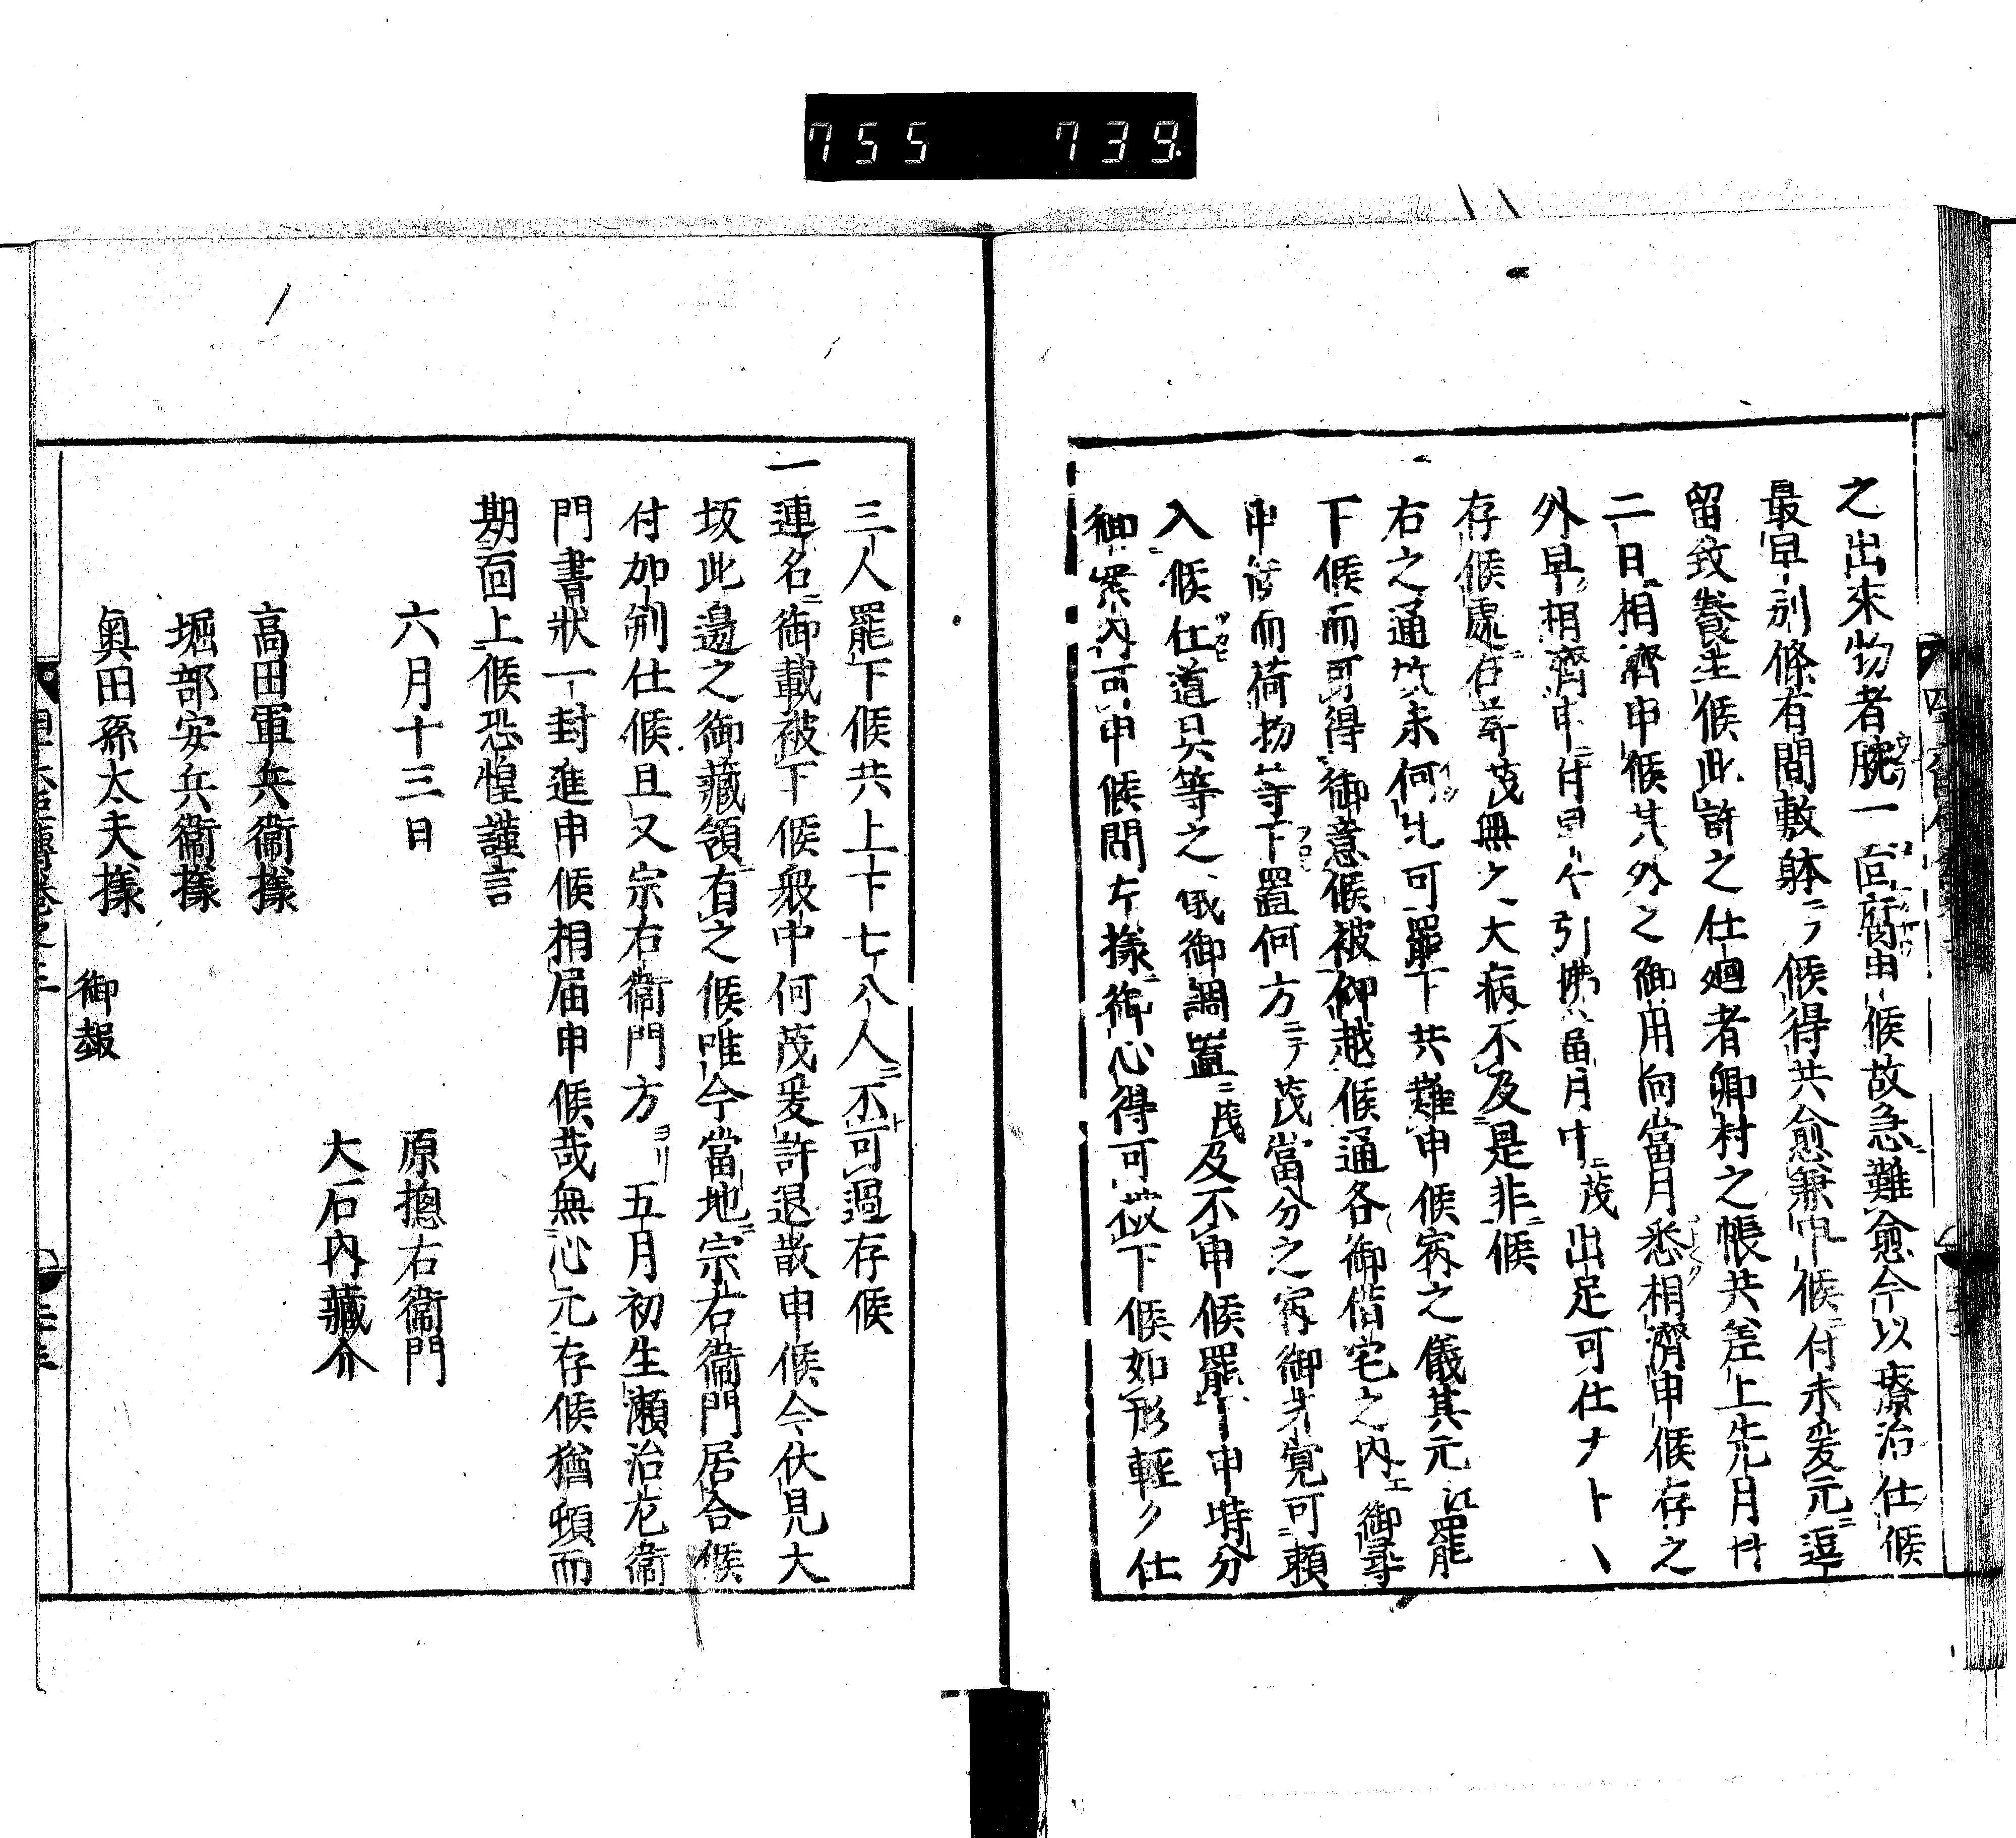 755 739.
之出來物者腕一面腐申候故急ニ難愈今以療治仕候
最早別條有間敷躰ニテ候得共愈兼申候ニ付未爰元ニ逗
留致養生候此許之仕廻者郷村之帳共差上先月廿
二日ニ相濟申候其外之御用向當月悉相濟申候存之
外早ク相濟申ニ付早々引拂當月中ニ茂出足可仕ナト丶
存候處ニ右茂無ク大病不及ニ是非ニ候
右之通故未何比可罷下共難申候病之儀其元江罷
下候而可得御意候被仰越候通各御借宅之内エ御尋
申候而荷物等下置何方ニテ茂當分之宿御才覚可賴
入候仕道具等之儀御調置ニ茂及不申候罷下申時分
御案内可申候間左樣ニ御心得可被下候如形輕ク仕
三人罷下候共上下七八人ニ不可過存候
一連名ニ御載被下候衆中何茂爰許退散申候今伏見大
坂此邊之御藏領ニ有之候唯今當地ニ宗右衞門居合候
付加判仕候且又宗右衞門方ヨリ五月初生瀬治左衞
門書状一封進申候相届申候哉無心元存候猶頓而
期面上候恐惶謹言
六月十三日
原摠右衞門
大石内藏介
高田軍兵衞様
堀部安兵衞様
奥田孫太夫様
御報